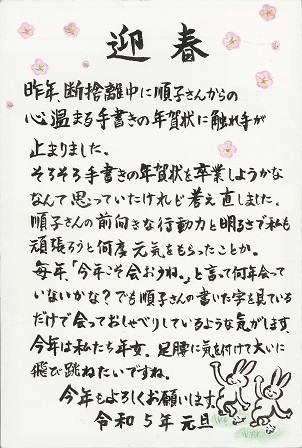 迎春
昨年、断捨離中に順子さんからの
心温まる手書きの年賀状に触れ手が
止まりました。
そろそろ手書きの年賀状を卒業しようかな
なんて思っていたけれど考え直しました。
順子さんの前向きな行動力と明るさで私も
頑張ろうと何度元気をもらったことか。
毎年、「今年こそ会おうね。」と言って何年会って
いないかな?でも順子さんの書いた字を見ている
だけで会っておしゃべりしているような気がします。
今年は私たち年女。足腰に気を付けて大いに
飛び跳ねたいですね。
今年もよろしくお願います
令和5年元旦